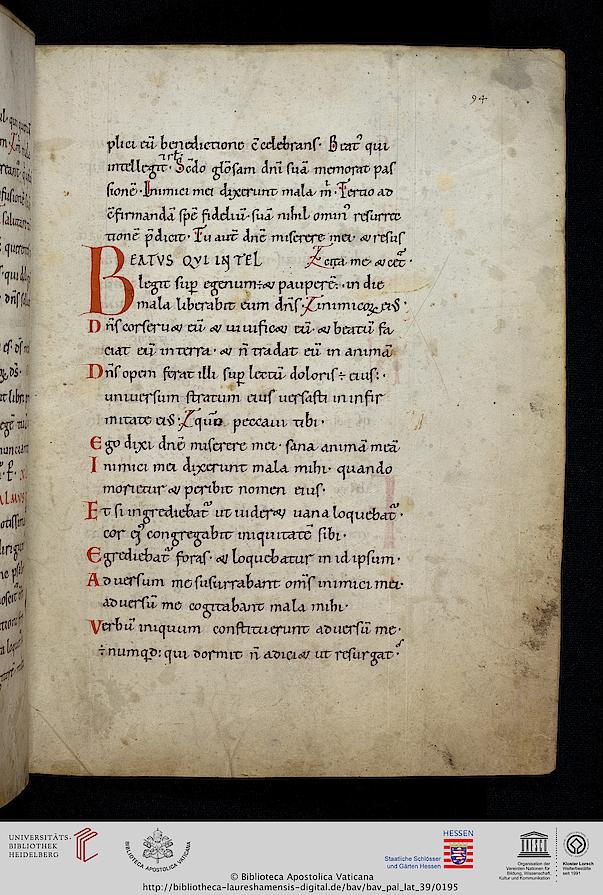 94
plici eū benedictione c̄celebrans· Beat᾽ qui
intellegit· Scd̄o glōsam dn̄i suā memorat pas
sionē· Inimici mei dixerunt mala m̄· Tertio ad
c̄firmandā spē fideliū· suā nihil omin᾽ resurrec
tionē p̄dicit· Tu aut̄ dnē miserere mei· & resus
BEATVS QVI INTEL cita me & cet̄·
legit sup̄ egenum÷& pauperē:· in die
mala liberabit eum dn̄s·
Dn̄s conseru& eū & uiuific& eū· & beatū fa
ciat eū in terra· & n̄ tradat eū in animā
Dn̄s opem ferat illi sup̄ lectū doloris÷ eius:·
universum stratum eius versasti in infir
mitate ei᾽: peccavi tibi·
Ego dixi dnē miserere mei· sana animā meā
Inimici mei dixerunt mala mihi· quando
morietur & peribit nomen eius·
Et si ingrediebat᾽ ut uider& uana loquebat᾽·
cor ei᾽ congregabit iniquitatē sibi·
Egrediebat᾽ foras· & loquebatur in id ipsum·
Adversum me susurrabant om̄s inimici mei·
adversū me cogitabant mala mihi·
Verbū iniquum constituerunt adversū me·
÷numqd̄: qui dormit n̄ adici& ut resurgat·
UNIVERSITÄTS-
BIBLIOTHEK
HEIDELBERG
BIBLIOTECA APOSTOLICA VATICANA
Staatliche Schlösser
und Gärten Hessen
HESSEN
Organisation der
Vereinten Nationen für
Bildung, Wissenschaft,
Kultur und Kommunikation
Kloster Lorsch
Welterbestätte
seit 1991
© Biblioteca Apostolica Vaticana
http://bibliotheca-laureshamensis-digital.de/bav/bav_pal_lat_39/0195